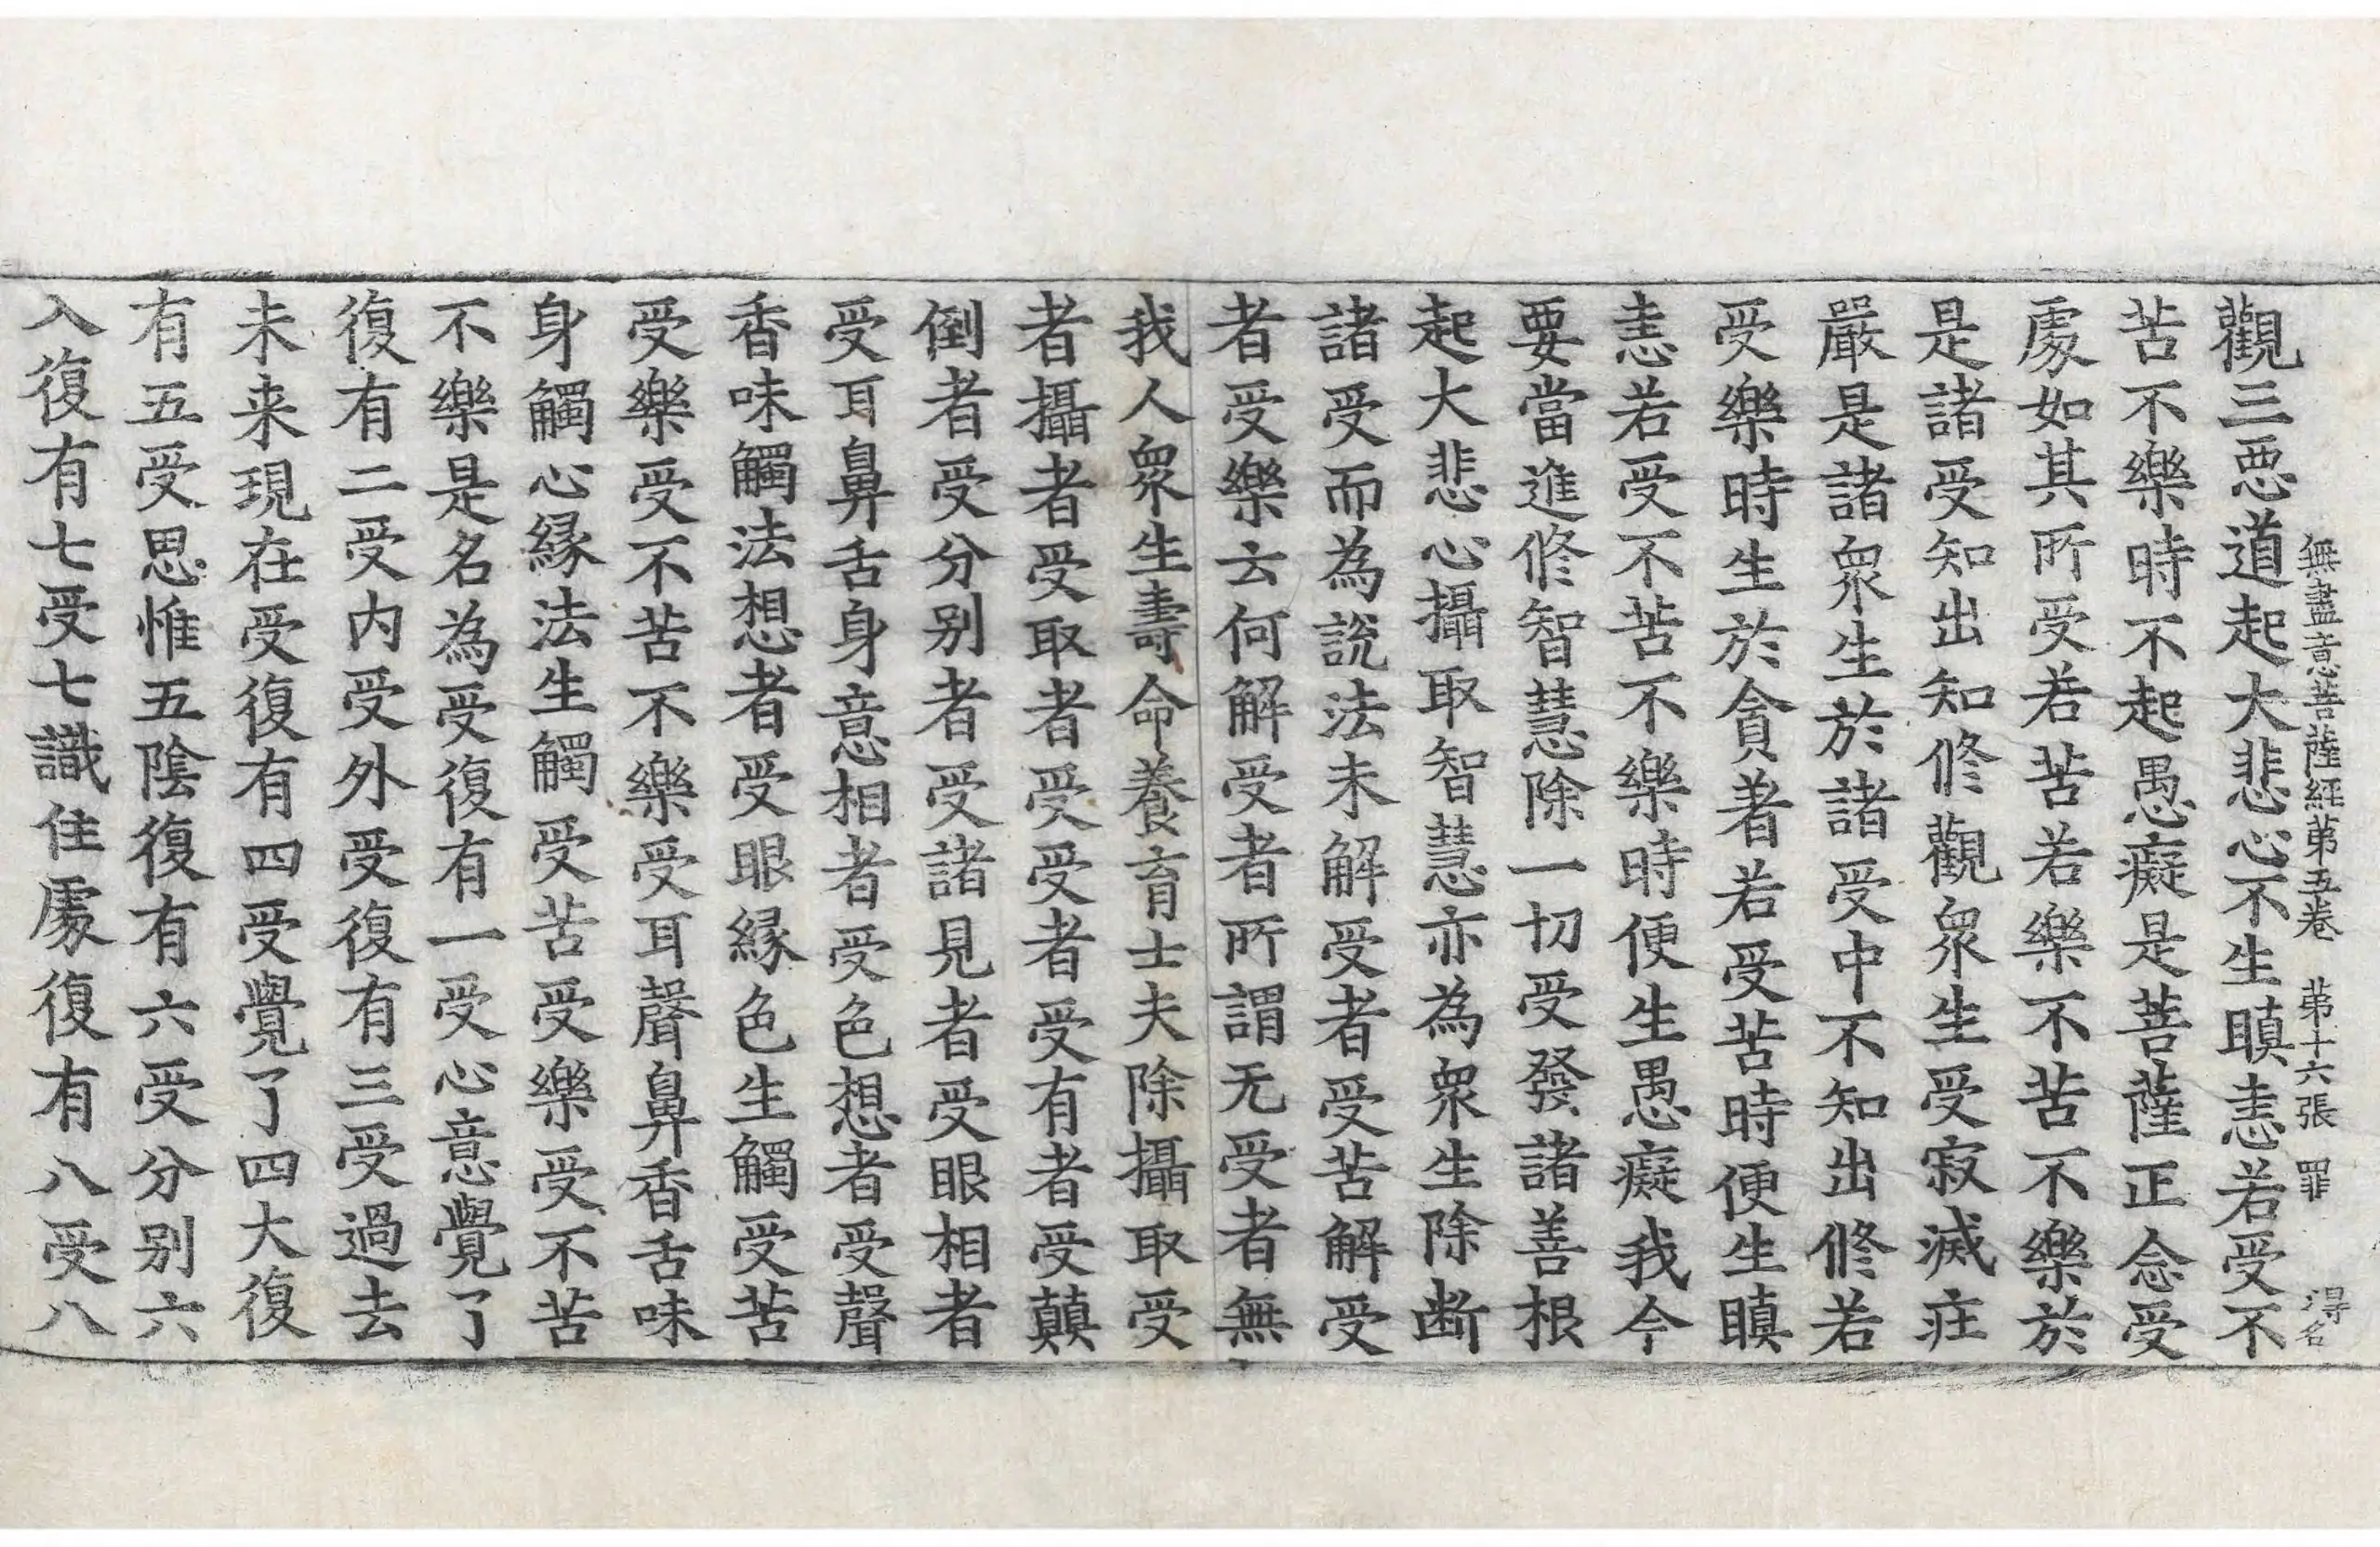 無盡意菩薩經第五卷　第十六張　罪　得名
觀三惡道起大悲心不生瞋恚若受不
苦不樂時不起愚癡是菩薩正念受
處如其所受若苦若樂不苦不樂於
是諸受知出知修觀衆生受寂滅庄
嚴是諸衆生於諸受中不知出修若
受樂時生於貪著若受苦時便生瞋
恚若受不苦不樂時便生愚癡我今
要當進修智慧除一切受發諸善根
起大悲心攝取智慧亦為衆生除断
諸受而為說法未解受者受苦解受
者受樂云何解受者所謂无受者無
我人衆生壽命養育士夫除攝取受
者攝者受取者受受者受有者受顛
倒者受分別者受諸見者受眼相者
受耳鼻舌身意相者受色想者受聲
香味觸法想者受眼緣色生觸受苦
受樂受不苦不樂受耳聲鼻香舌味
身觸心緣法生觸受苦受樂受不苦
不樂是名為受復有一受心意覺了
復有二受内受外受復有三受過去
未来現在受復有四受覺了四大復
有五受思惟五陰復有六受分別六
入復有七受七識住處復有八受八